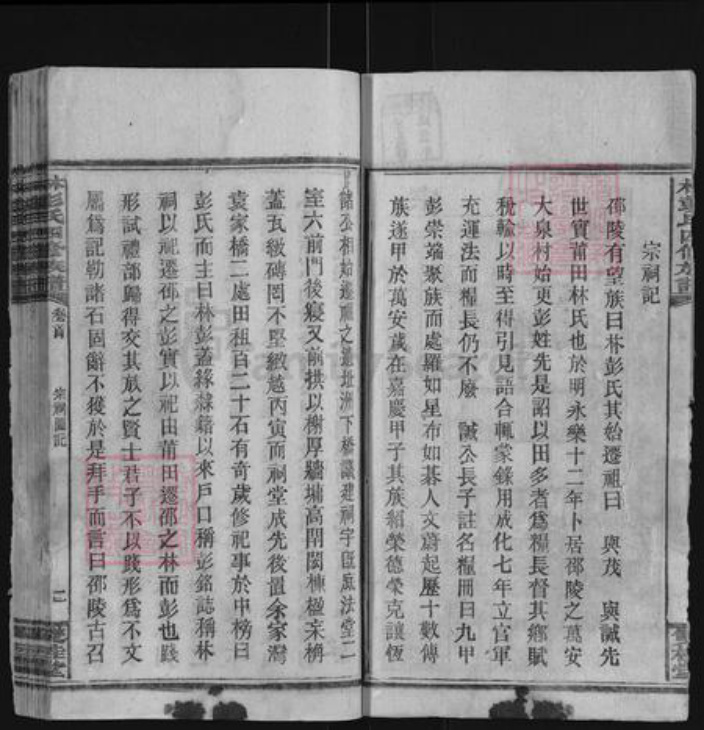 宗祠記
邵陵有望族曰林彭氏其始遷祖曰 興茂 興誠先
世實莆田林氏也於明永樂十二年卜居邵陵之萬安
大泉村始更彭姓先是詔以田多者爲糧長督其鄉賦
稅輸以時至得引見語合輒蒙錄用成化七年立官軍
充運法而糧長仍不廢 誠公長子註名糧冊曰九甲
彭崇端聚族而處羅如星布如碁人文蔚起歷十數傳
族遂甲於萬安歲在嘉慶甲子其族紹榮德榮克讓恆
儲公相始遷祖之遺址洲下橋議建祠宇匠庶法堂二
室六前門後寢又前拱以榭厚牆墉高閈閎棟楹桷
蓋瓦級磚罔不堅緻越丙寅而祠堂成先後置余家灣
袁家橋二處田租百二十石有奇歲修祀事於中榜曰
彭氏而主曰林彭蓋緣隸籍以來戶口稱彭銘誌稱林
祠以祀遷邵之彭實以祀由莆田遷邵之林而彭也踐
形試禮部歸得交其族之賢士君子不以踐形爲不文
屬爲記勒諸石固辭不獲於是拜手而言曰邵陵古召
林彭氏四修族譜
卷首
宗祠圖記
二